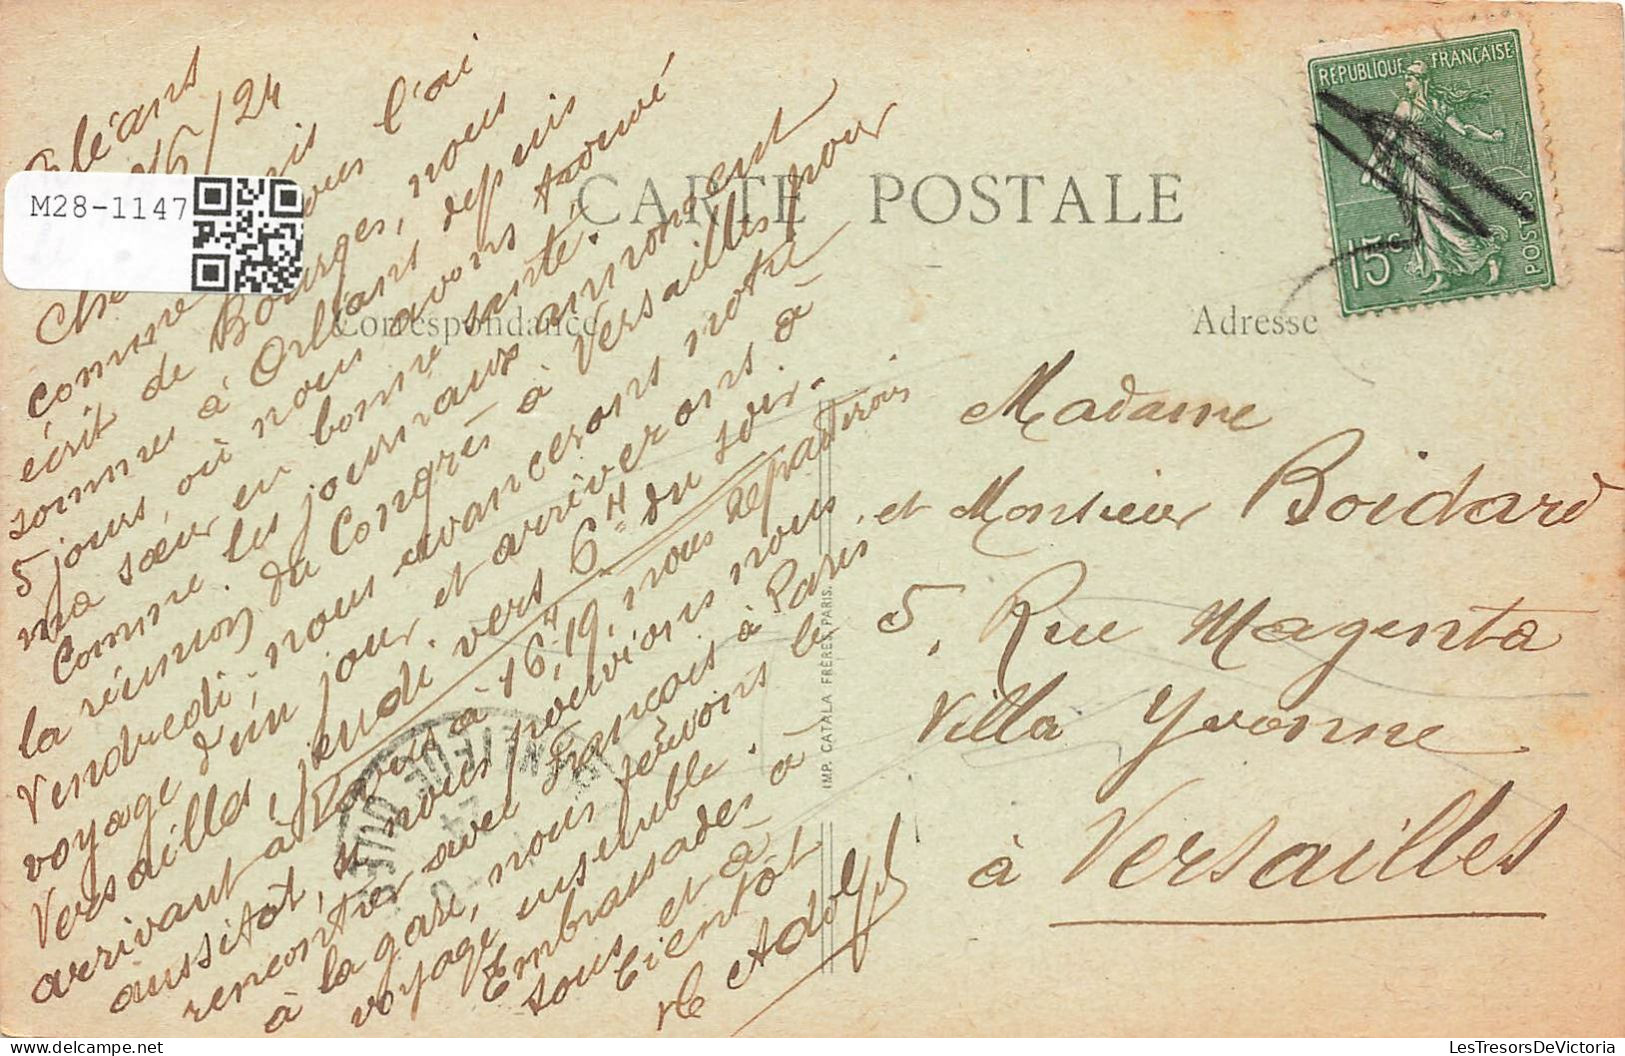 Orléans
/6/24
M28-1147
comme vous l'ai
écrit de Bourges, nous
sommes à Orléans depuis
5 jours, où nous avons trouvé
ma sœur en bonne santé.
Comme les journaux annoncent
la réunion du Congrès à Versailles pour
Vendredi, nous avancerons notre
voyage d'un jour et arriverons à
Versailles jeudi vers 6H du soir.
arrivant à Paris à 16H,19, nous repartirons
aussitôt, si nous pouvions nous
rencontrer avec François à Paris
à la gare, nous ferions le
voyage ensemble.
Embrassades à
tous et à
bientôt
Adolf
CARTE POSTALE
Correspondance
Adresse
RÉPUBLIQUE FRANÇAISE
15c
POSTES
Madame
et Monsieur Boidard
5, Rue Magenta
Villa Yvonne
à Versailles
IMP. CATALA FRÈRES, PARIS.
www.delcampe.net
LesTresorsDeVictoria